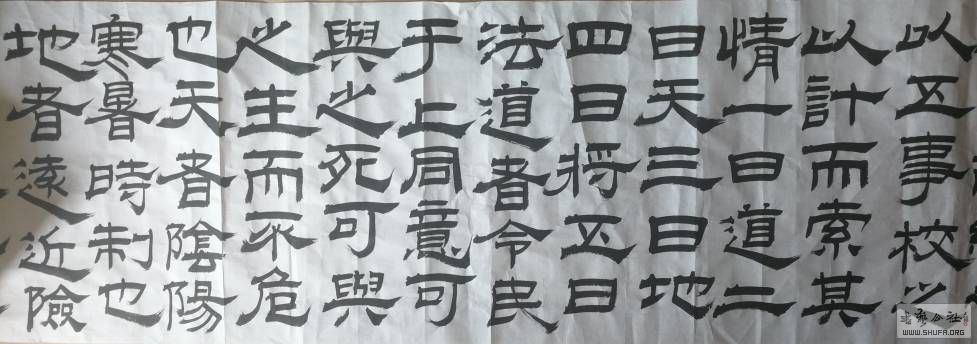 以五事校之
以計而索其
情一曰道二
曰天三曰地
四曰将五曰
法道者令民
于上同意可
與之死可與
之生而不危
也天者陰陽
寒暑時制也
地者遠近險
WWW.SHUFA.ORG